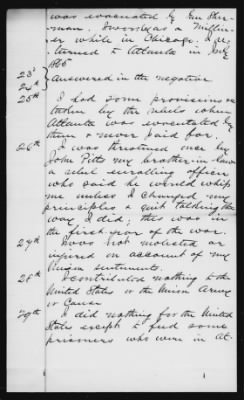 was evacuated by Gen Sher-
man. I was also a Millin-
er while in Chicago. I re-
turned to Atlanta in July
1865
23d
24th } Answered in the negative
25th I had some provisions &c
taken by the rebels when
Atlanta was evacuated by
them & never paid for.
26th I was threatened once by
John Pitts my brother-in-law
a rebel enrolling officer
who said he would whip
me unless I changed my
principles & quit talking the
way I did; this was in
the first year of the war.
27th I was not molested or
injured on account of my
Union sentiments.
28th I contributed nothing to the
United States or the Union Army
or Cause
29th I did nothing for the United
States except to feed some
prisoners who were in At-